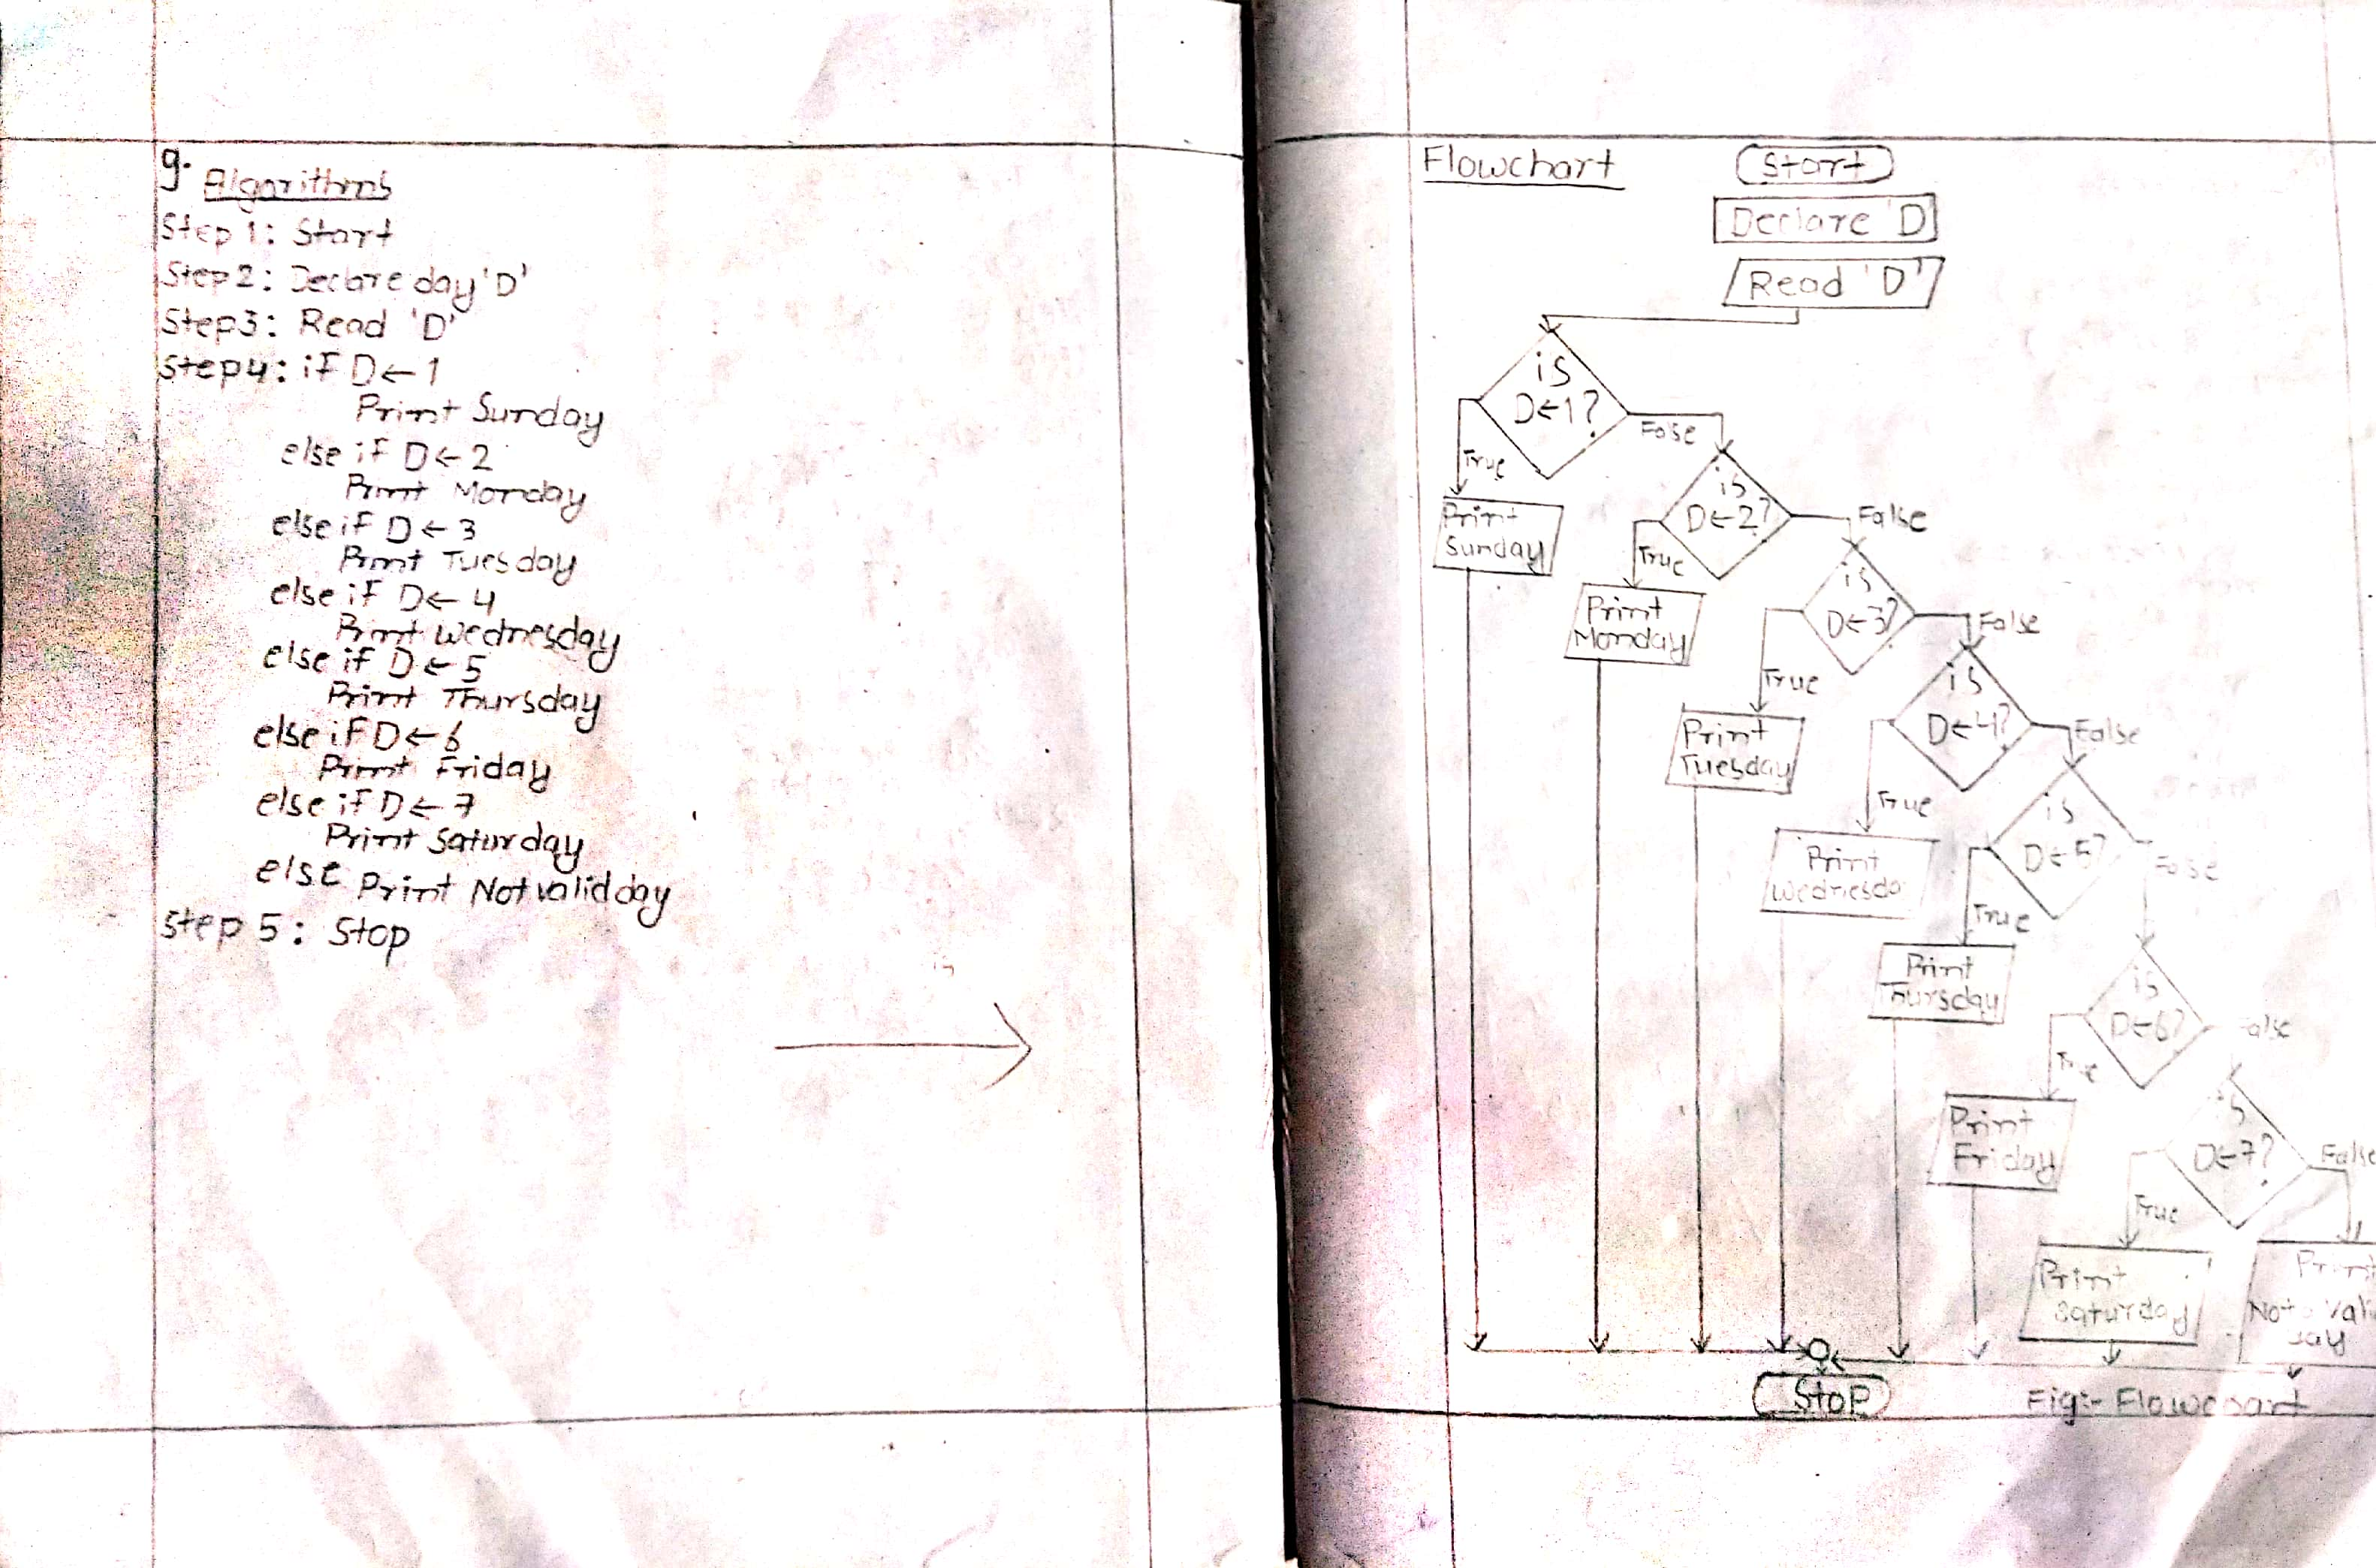 9. Algorithms
Step 1: Start
Step2: Declare day 'D'
Step3: Read 'D'
Step4: if D←1
Print Sunday
else if D←2
Print Monday
else if D←3
Print Tuesday
else if D←4
Print Wednesday
else if D←5
Print Thursday
else if D←6
Print Friday
else if D←7
Print Saturday
else Print Not valid day
Step 5: Stop
Flowchart
Start
Declare 'D
Read 'D'
is
D←1?
True
False
Print
Sunday
is
D←2?
True
False
Print
Monday
is
D←3?
True
False
Print
Tuesday
is
D←4?
True
False
Print
Wednesda
is
D←5?
True
False
Print
Thursday
is
D←6?
True
False
Print
Friday
is
D←7?
True
False
Print
Saturday
Print
Not vali
day
Stop
Fig:- Flowchart